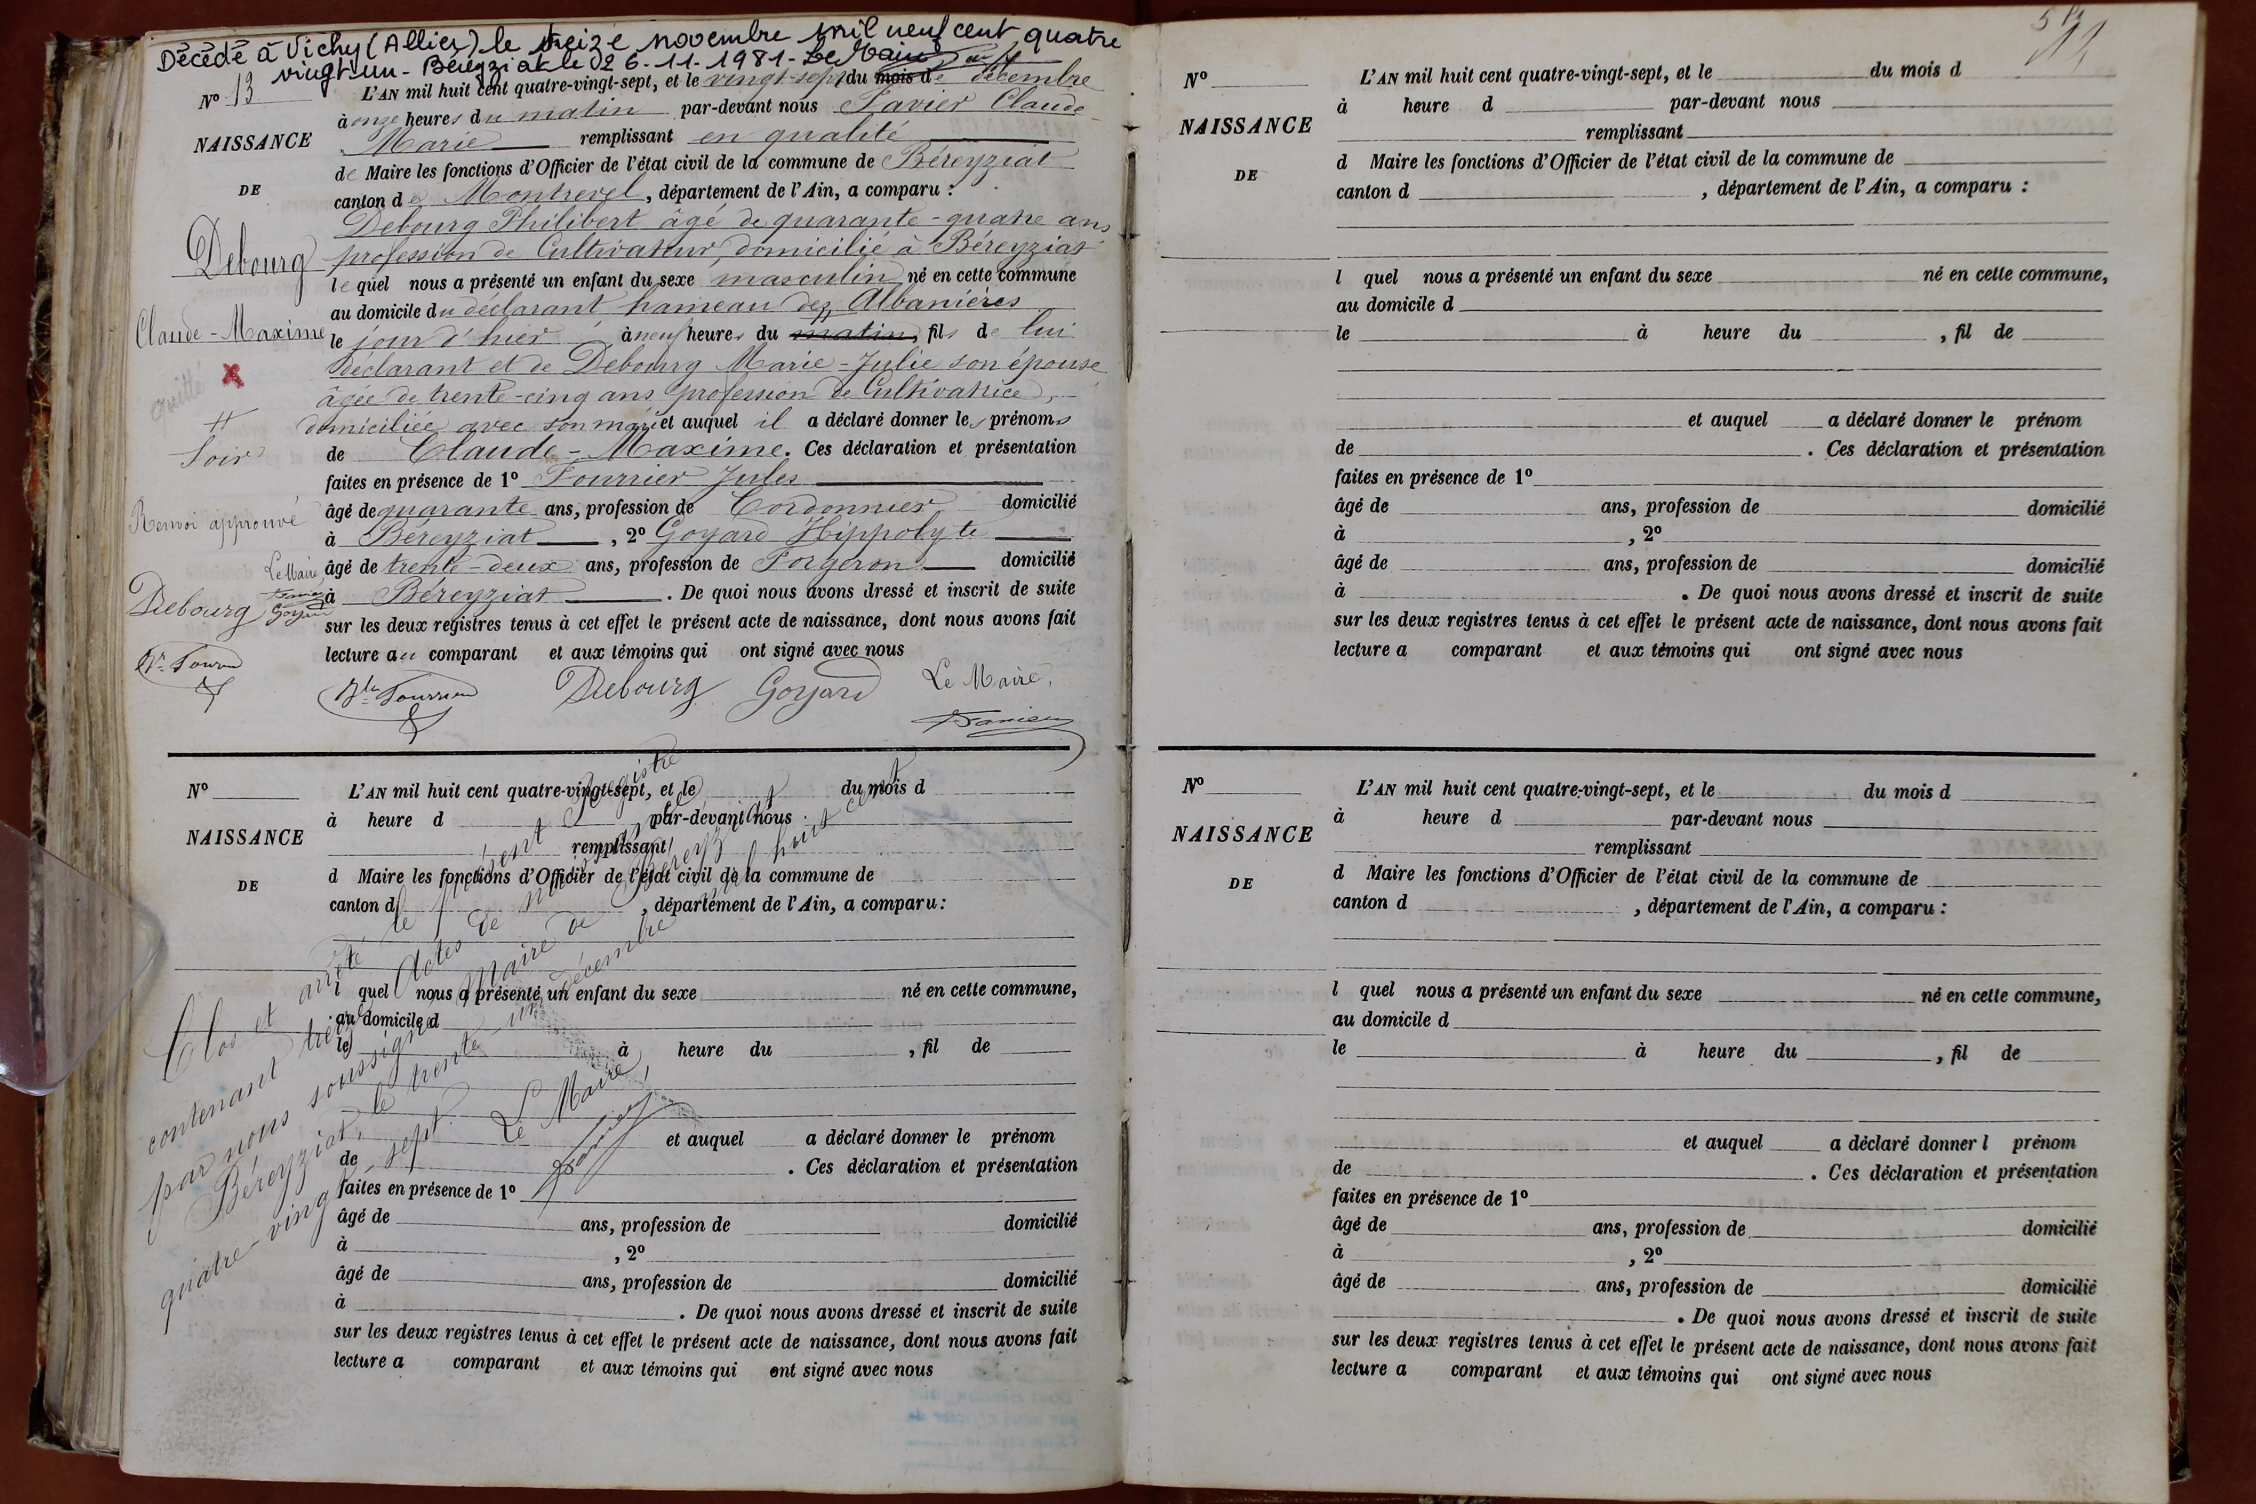 Décédé à Vichy (Allier) le treize novembre mil neuf cent quatre
vingt-un - Béreyziat le 26.11.1981 - Le Maire
N° 13
NAISSANCE
DE
Debourg
Claude-Maxime
L'AN mil huit cent quatre-vingt-sept, et le vingt-sept du mois de décembre
à onze heures du matin par-devant nous Favier Claude
Marie remplissant en qualité
de Maire les fonctions d'Officier de l'état civil de la commune de Béreyziat
canton de Montrevel, département de l'Ain, a comparu :
Debourg Philibert âgé de quarante-quatre ans
profession de Cultivateur, domicilié à Béreyziat
lequel nous a présenté un enfant du sexe masculin né en cette commune
au domicile du déclarant hameau des Albanières
le jour d'hier à neuf heures du matin, fils de lui
déclarant et de Debourg Marie-Julie son épouse
âgée de trente-cinq ans profession de Cultivatrice,
domiciliée avec son mari et auquel il a déclaré donner les prénoms
de Claude-Maxime. Ces déclaration et présentation
faites en présence de 1° Fourrier Jules
âgé de quarante ans, profession de Cordonnier domicilié
à Béreyziat, 2° Goyard Hippolyte
âgé de trente-deux ans, profession de Forgeron domicilié
à Béreyziat. De quoi nous avons dressé et inscrit de suite
sur les deux registres tenus à cet effet le présent acte de naissance, dont nous avons fait
lecture au comparant et aux témoins qui ont signé avec nous
Fourrier Debourg Goyard Le Maire,
Soir
Renvoi approuvé
Le Maire
Debourg Goyard
N°
NAISSANCE
DE
L'AN mil huit cent quatre-vingt-sept, et le du mois d
à heure d par-devant nous
remplissant
d Maire les fonctions d'Officier de l'état civil de la commune de
canton d , département de l'Ain, a comparu :
l quel nous a présenté un enfant du sexe né en cette commune,
au domicile d
le à heure du , fil de
et auquel a déclaré donner le prénom
de . Ces déclaration et présentation
faites en présence de 1°
âgé de ans, profession de domicilié
à , 2°
âgé de ans, profession de domicilié
à . De quoi nous avons dressé et inscrit de suite
sur les deux registres tenus à cet effet le présent acte de naissance, dont nous avons fait
lecture a comparant et aux témoins qui ont signé avec nous
Clos et arrêté le présent Registre
contenant treize Actes de naissance
par nous soussigné Maire de Béreyziat
Béreyziat, le trente-un décembre mil huit cent
quatre-vingt-sept. Le Maire,
N°
NAISSANCE
DE
L'AN mil huit cent quatre-vingt-sept, et le du mois d
à heure d par-devant nous
remplissant
d Maire les fonctions d'Officier de l'état civil de la commune de
canton d , département de l'Ain, a comparu :
l quel nous a présenté un enfant du sexe né en cette commune,
au domicile d
le à heure du , fil de
et auquel a déclaré donner le prénom
de . Ces déclaration et présentation
faites en présence de 1°
âgé de ans, profession de domicilié
à , 2°
âgé de ans, profession de domicilié
à . De quoi nous avons dressé et inscrit de suite
sur les deux registres tenus à cet effet le présent acte de naissance, dont nous avons fait
lecture a comparant et aux témoins qui ont signé avec nous
N°
NAISSANCE
DE
L'AN mil huit cent quatre-vingt-sept, et le du mois d
à heure d par-devant nous
remplissant
d Maire les fonctions d'Officier de l'état civil de la commune de
canton d , département de l'Ain, a comparu :
l quel nous a présenté un enfant du sexe né en cette commune,
au domicile d
le à heure du , fil de
et auquel a déclaré donner l prénom
de . Ces déclaration et présentation
faites en présence de 1°
âgé de ans, profession de domicilié
à , 2°
âgé de ans, profession de domicilié
. De quoi nous avons dressé et inscrit de suite
sur les deux registres tenus à cet effet le présent acte de naissance, dont nous avons fait
lecture a comparant et aux témoins qui ont signé avec nous